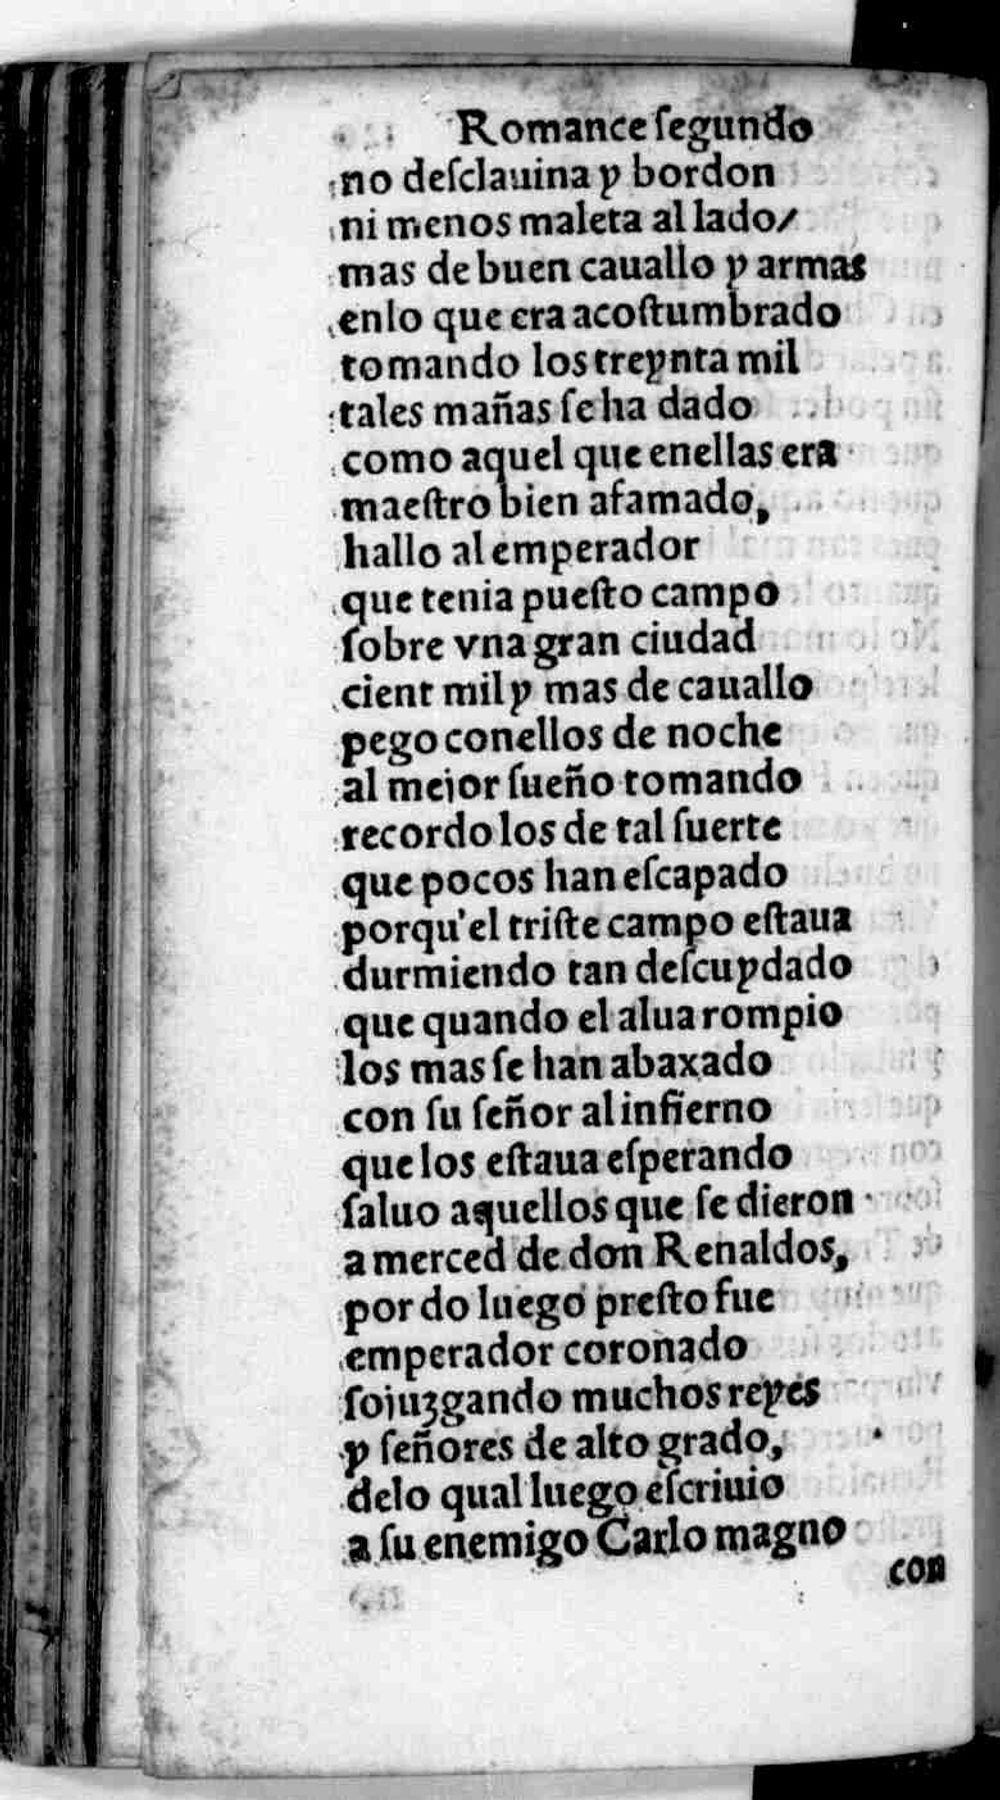 Romance ſegundo
no deſclauina y bordon
ni menos maleta al lado/
mas de buen cauallo y armas
enlo que era acoſtumbrado
tomando los treynta mil
tales mañas ſe ha dado
como aquel que enellas era
maeſtro bien afamado,
hallo al emperador
que tenia pueſto campo
ſobre vna gran ciudad
cient mil y mas de cauallo
pego conellos de noche
al mejor ſueño tomando
recordo los de tal ſuerte
que pocos han eſcapado
porqu'el triſte campo eſtaua
durmiendo tan deſcuydado
que quando el alua rompio
los mas ſe han abaxado
con ſu ſeñor al infierno
que los eſtaua eſperando
ſaluo aquellos que ſe dieron
a merced de don Renaldos,
por do luego preſto fue
emperador coronado
ſojuzgando muchos reyes
y ſeñores de alto grado,
delo qual luego eſcriuio
a ſu enemigo Carlo magno
con